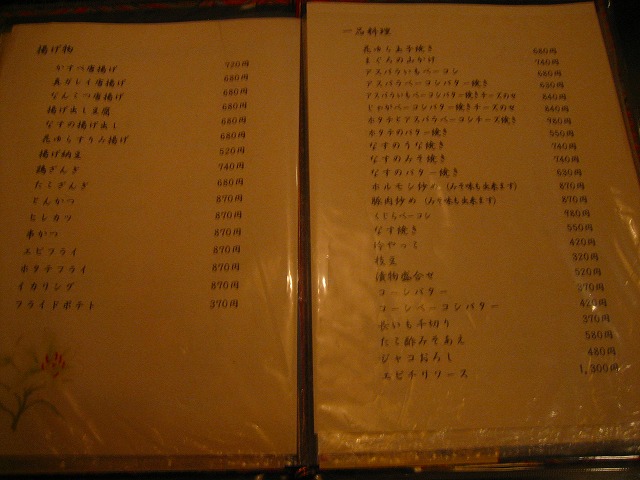 揚げ物
かすべ唐揚げ 720円
真ガレイ唐揚げ 680円
なんこつ唐揚げ 680円
揚げ出し豆腐 680円
なすの揚げ出し 680円
花ゆらすりみ揚げ 680円
揚げ納豆 520円
鶏ざんぎ 740円
たこざんぎ 680円
とんかつ 870円
ヒレカツ 870円
串かつ 870円
エビフライ 870円
ホタテフライ 870円
イカリング 870円
フライドポテト 370円
一品料理
花ゆら玉子焼き 680円
まぐろの山かけ 780円
アスパラいもベーコン 680円
アスパラベーコンバター焼き 630円
アスパラいもベーコンバター焼きチーズのせ 840円
じゃがベーコンバター焼きチーズのせ 840円
ホタテとアスパラベーコンチーズ焼き 980円
ホタテのバター焼き 550円
なすのうな焼き 740円
なすのみそ焼き 740円
なすのバター焼き 630円
ホルモン炒め（みそ味も出来ます） 870円
豚肉炒め（みそ味も出来ます） 870円
くじらベーコン 980円
なす焼き 550円
冷やっこ 420円
枝豆 320円
漬物盛合せ 520円
コーンバター 370円
コーンベーコンバター 420円
長いも千切り 370円
たこ酢みそあえ 580円
ジャコおろし 480円
エビチリソース 1,300円